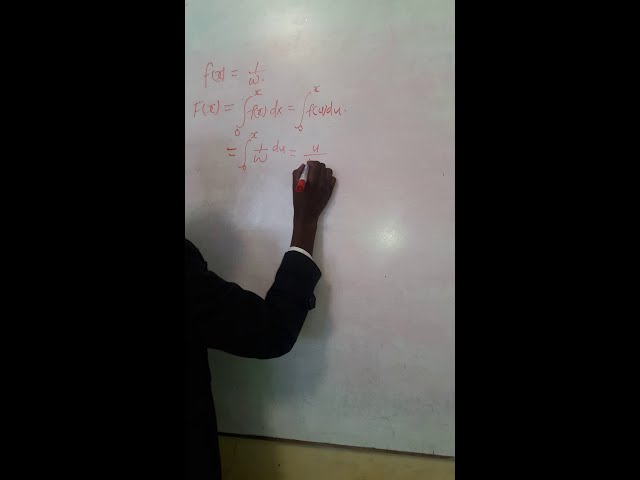 f(x) = 1/ω.
F(x) = ∫₀ˣ f(x) dx = ∫₀ˣ f(u) du.
= ∫₀ˣ 1/ω du = u/